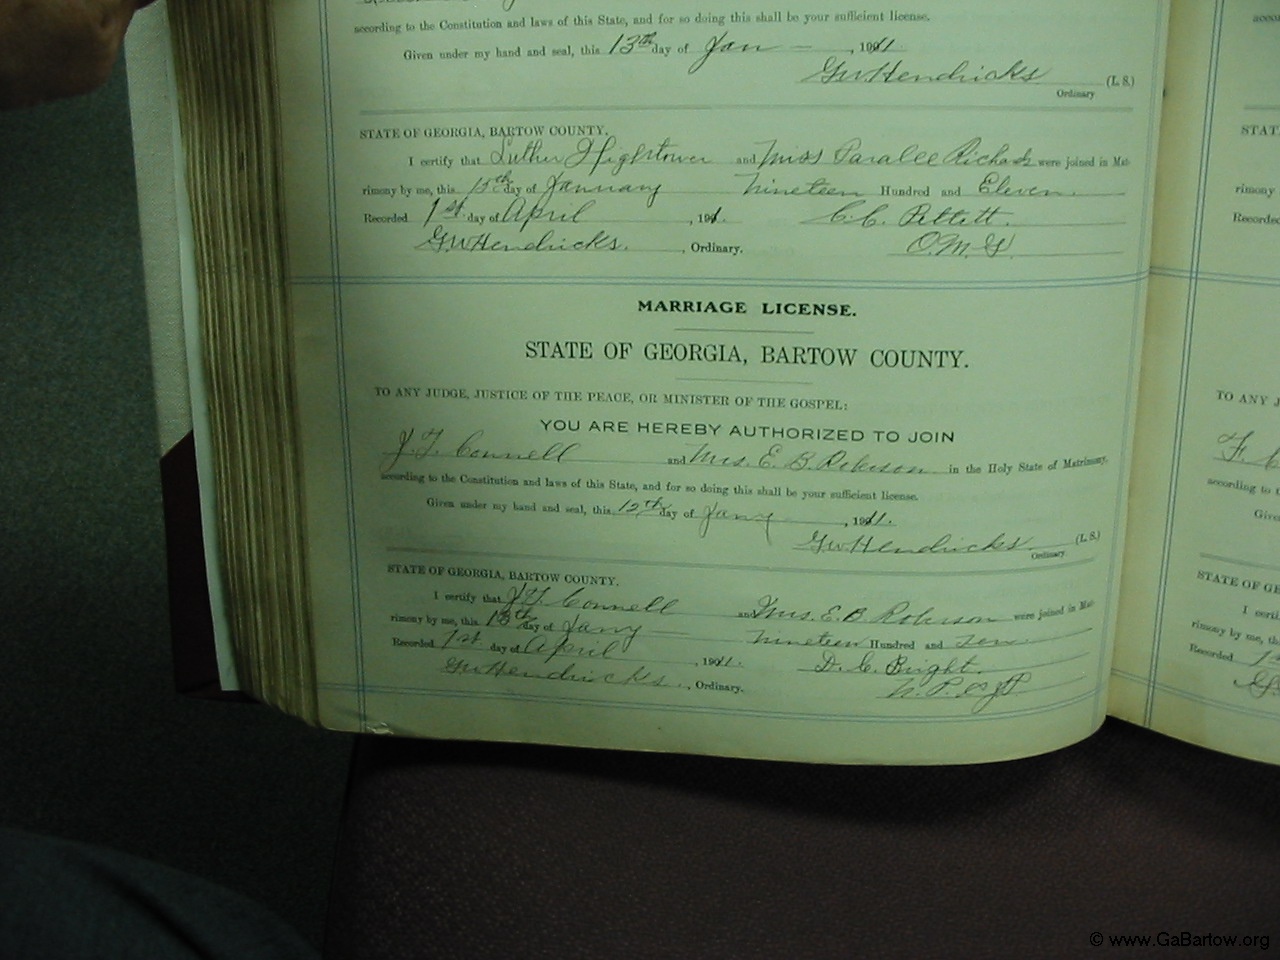 according to the Constitution and laws of this State, and for so doing this shall be your sufficient license.
Given under my hand and seal, this 13th day of Jan , 1911.
GW Hendricks (L. S.)
Ordinary
STATE OF GEORGIA, BARTOW COUNTY.
I certify that Luther Hightower and Miss Paralee Richards were joined in Mat-
rimony by me, this 15th day of January Nineteen Hundred and Eleven.
Recorded 1st day of April , 191. C. C. Pettett.
GW Hendricks. , Ordinary. O.M.G.
MARRIAGE LICENSE.
STATE OF GEORGIA, BARTOW COUNTY.
TO ANY JUDGE, JUSTICE OF THE PEACE, OR MINISTER OF THE GOSPEL:
YOU ARE HEREBY AUTHORIZED TO JOIN
J. F. Connell and Mrs. E. B. Roberson in the Holy State of Matrimony,
according to the Constitution and laws of this State, and for so doing this shall be your sufficient license.
Given under my hand and seal, this 12th day of Jany , 1911.
GW Hendricks (L. S.)
Ordinary
STATE OF GEORGIA, BARTOW COUNTY.
I certify that J. F. Connell and Mrs. E. B. Roberson were joined in Mat-
rimony by me, this 15th day of Jany Nineteen Hundred and Ten.
Recorded 1st day of April , 1911. D. C. Bright.
GW Hendricks. , Ordinary. N. P. & J P.
STAT
rimony
Recorded
TO ANY J
according to t
Given
STATE OF GE
I certi
rimony by me, th
Recorded
© www.GaBartow.org